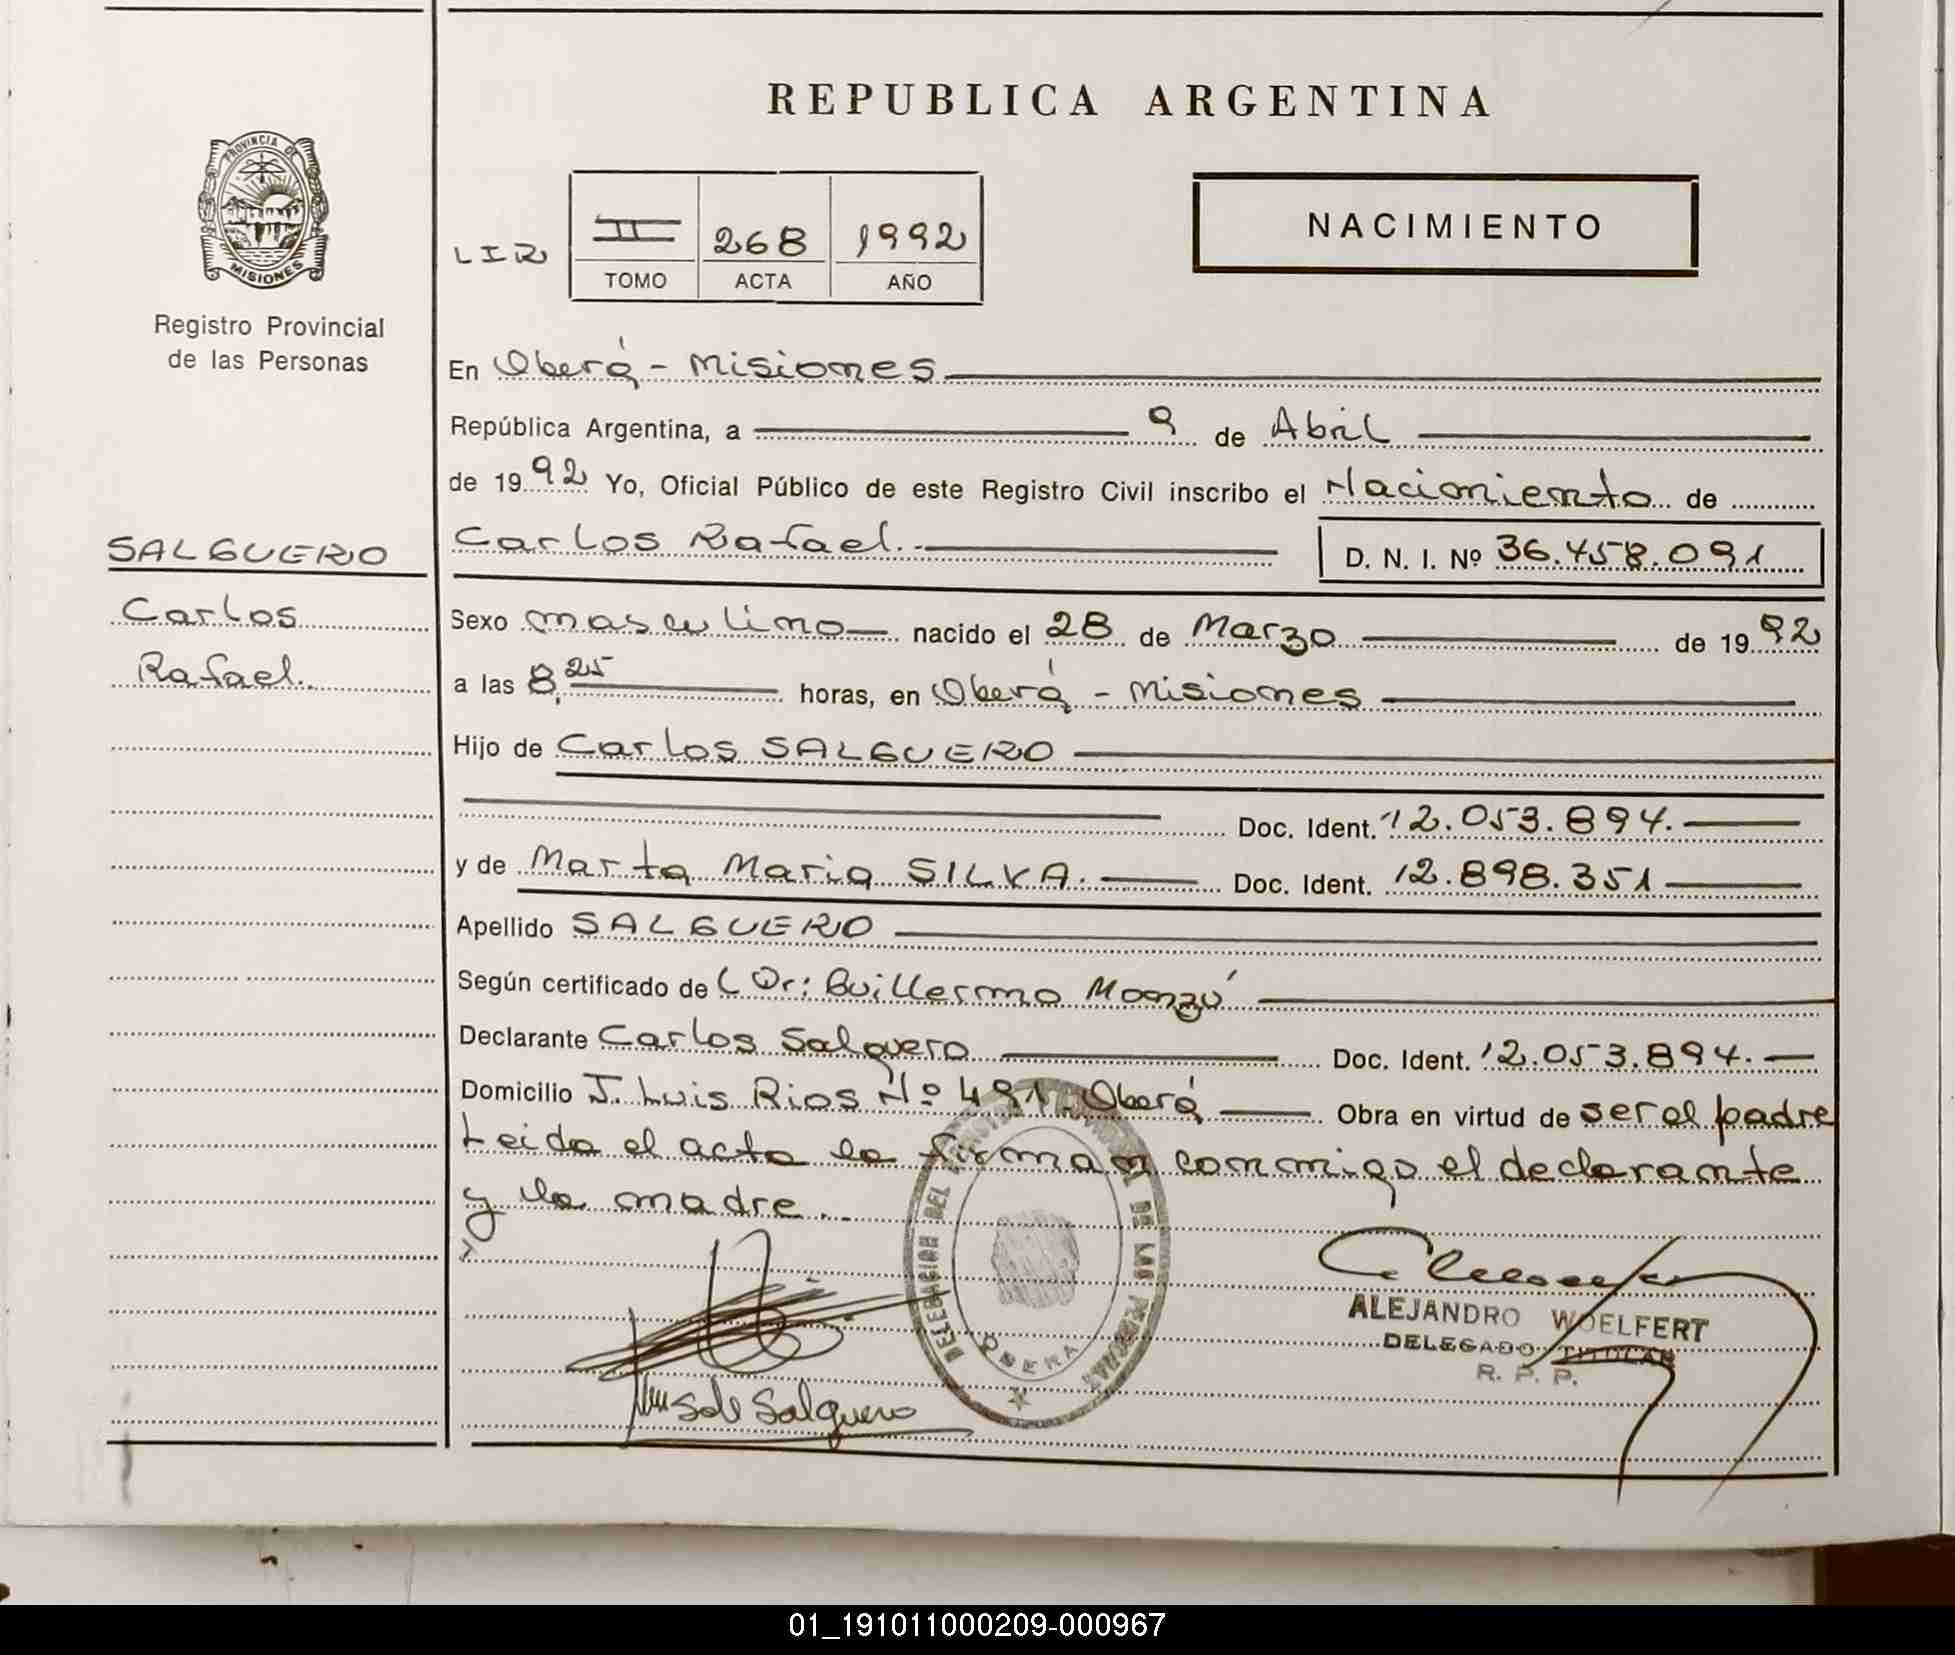 REPUBLICA ARGENTINA
PROVINCIA DE MISIONES
Registro Provincial
de las Personas
LIR
II 268 1992
TOMO ACTA AÑO
NACIMIENTO
En Oberá - Misiones
República Argentina, a 9 de Abril
de 1992 Yo, Oficial Público de este Registro Civil inscribo el Nacimiento de
SALGUERO
Carlos
Rafael.
Carlos Rafael. D. N. I. Nº 36.458.091
Sexo masculino nacido el 28 de Marzo de 1992
a las 8,25 horas, en Oberá - Misiones
Hijo de Carlos SALGUERO
Doc. Ident. 12.053.894.
y de Marta Maria SILVA. Doc. Ident. 12.898.351
Apellido SALGUERO
Según certificado de L Dr: Guillermo Monzú
Declarante Carlos Salguero Doc. Ident. 12.053.894.
Domicilio J. Luis Rios Nº 491 Oberá Obra en virtud de ser el padre
Leida el acta la firman conmigo el declarante
y la madre.
DELEGACION DEL REGISTRO PROVINCIAL DE LAS PERSONAS
OBERA
ALEJANDRO WOELFERT
DELEGADO TITULAR
R. P. P.
de Salguero
01_191011000209-000967